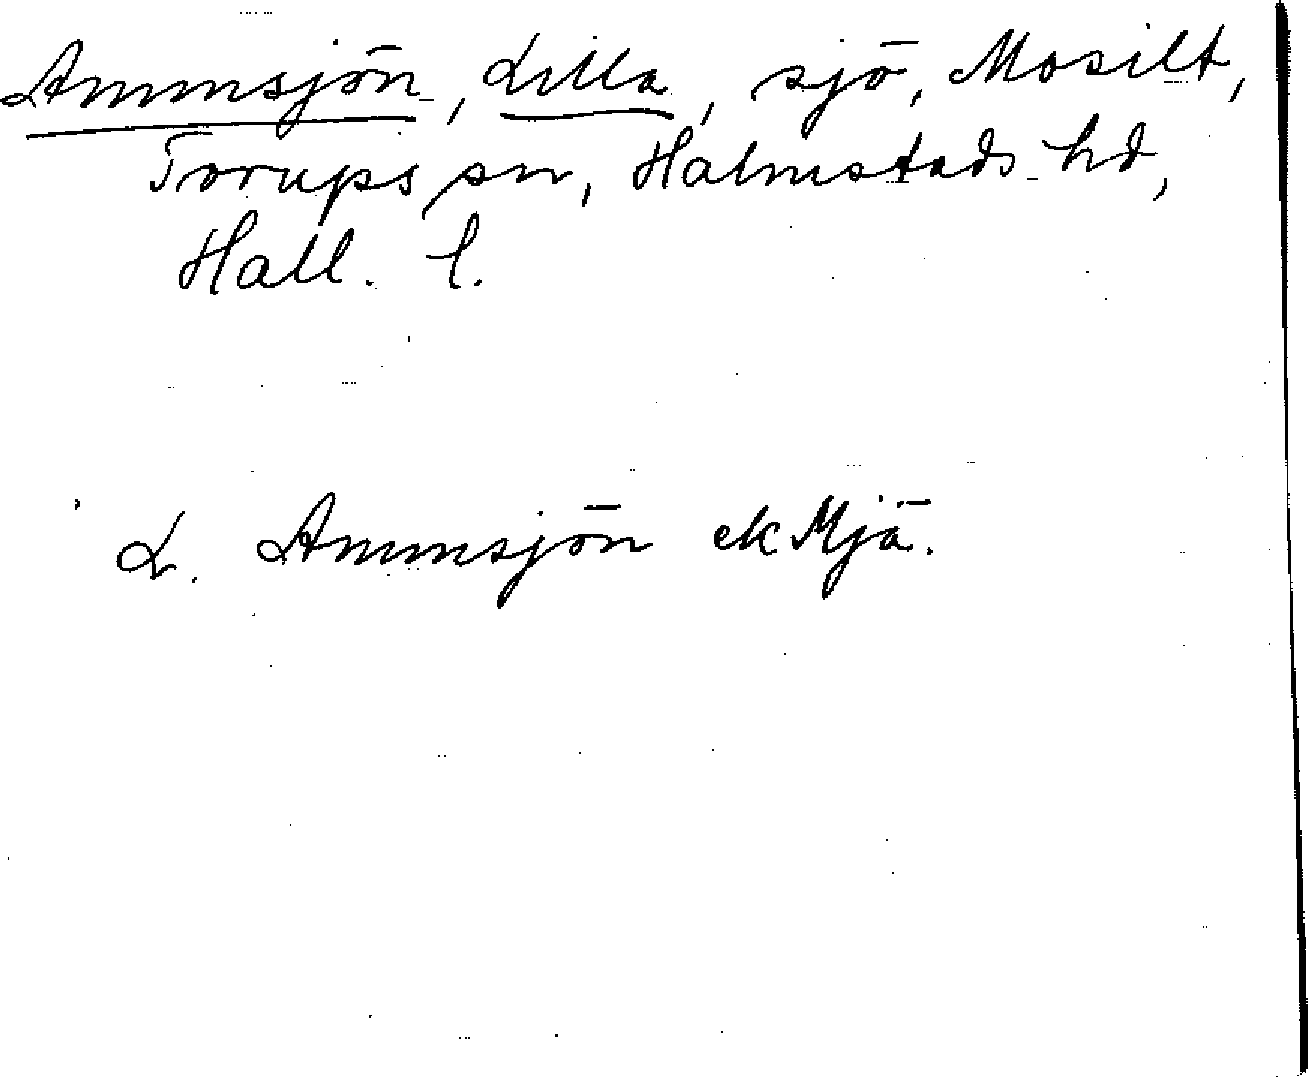 Ammsjön, Lilla, sjö, Mosilt,
Torups sn, Halmstads hd,
Hall. l.
L. Ammsjön ek Mjä.